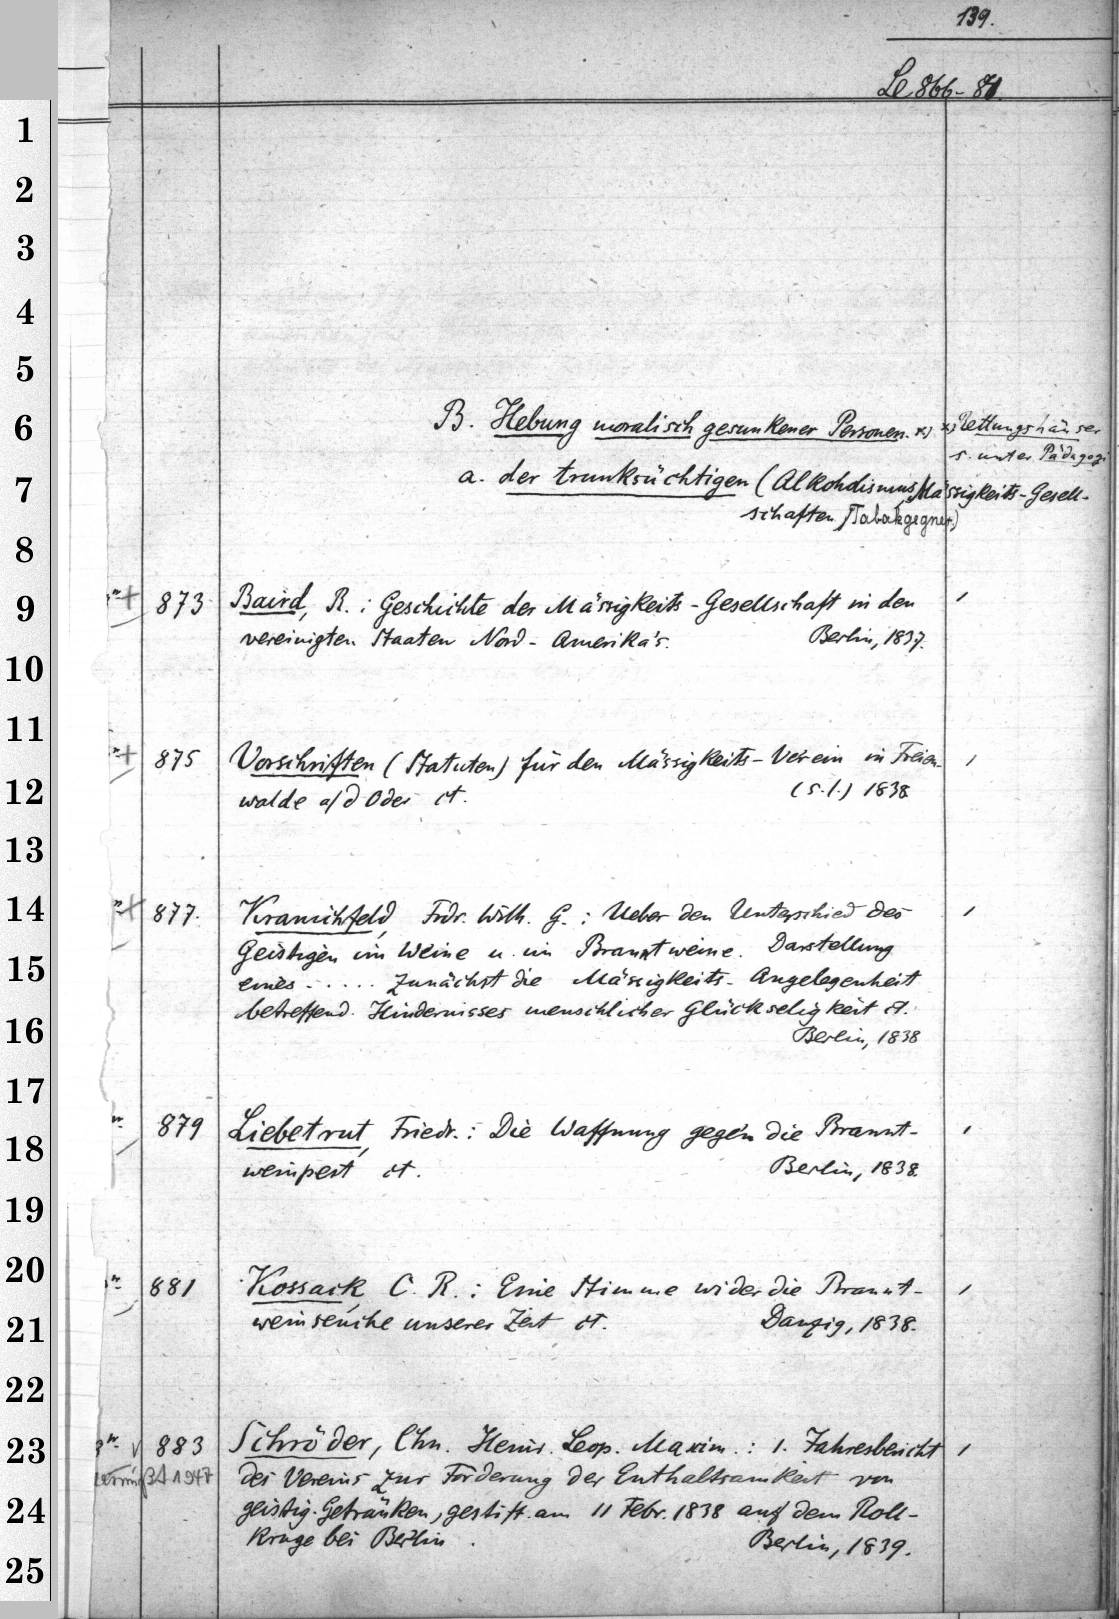 139.
Le 866-81.
B. Hebung moralisch gesunkener Personen. x)
x) Rettungshäuser
s. unter Pädagogi
a. der trunksüchtigen (Alkoholismus, Mässigkeits-Gesell-
schaften, Tabakgegner)
873 Baird, R.: Geschichte der Mässigkeits-Gesellschaft in den
vereinigten Staaten Nord-Amerika's. Berlin, 1837.
875 Vorschriften (Statuten) für den Mässigkeits-Verein in Freien-
walde a/d Oder ct. (s.l.) 1838
877. Kranichfeld, Frdr. Wilh. G.: Ueber den Unterschied des
Geistigen im Weine u. im Branntweine. Darstellung
eines ..... zunächst die Mässigkeits-Angelegenheit
betreffend. Hindernisses menschlicher Glückseligkeit ct.
Berlin, 1838
879 Liebetrut, Friedr.: Die Waffnung gegen die Brannt-
weinpest ct. Berlin, 1838.
881 Kossack, C. R.: Eine Stimme wider die Brannt-
weinseuche unserer Zeit ct. Danzig, 1838.
883 Schröder, Chn. Heinr. Leop. Maxim.: 1. Jahresbericht
des Vereins zur Förderung der Enthaltsamkeit von
geistig. Getränken, gestift. am 11 Febr. 1838 auf dem Roll-
kruge bei Berlin. Berlin, 1839.
1
2
3
4
5
6
7
8
9
10
11
12
13
14
15
16
17
18
19
20
21
22
23
24
25